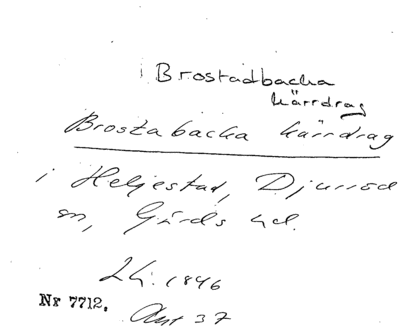 Brostadbacka
kärrdrag
Brostabacka kärrdrag
i Heljestad, Djurröd
sn, Gärds hd.
LK. 1846
Nr 7712.
Akt 37